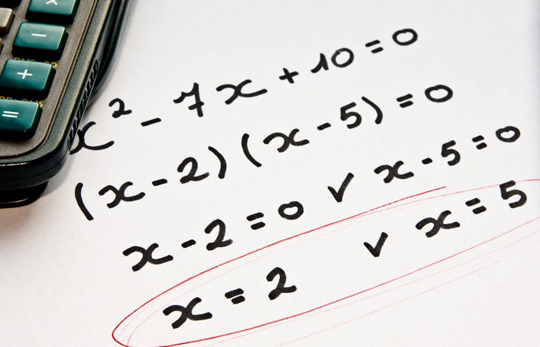 x² - 7x + 10 = 0
(x - 2) (x - 5) = 0
x - 2 = 0 ✓ x - 5 = 0
x = 2 ✓ x = 5
×
−
+
=